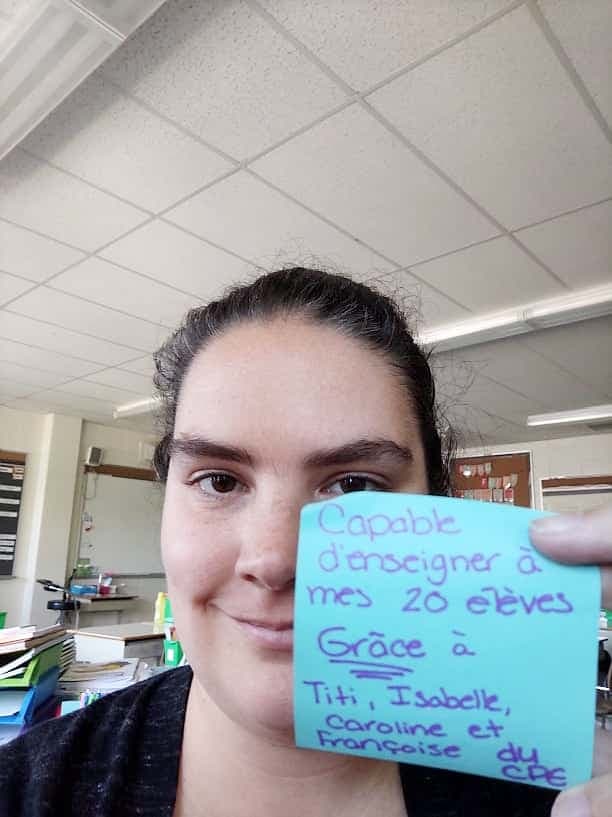 Capable
d'enseigner à
mes 20 élèves
Grâce à
Titi, Isabelle,
Caroline et
Françoise du
CPE